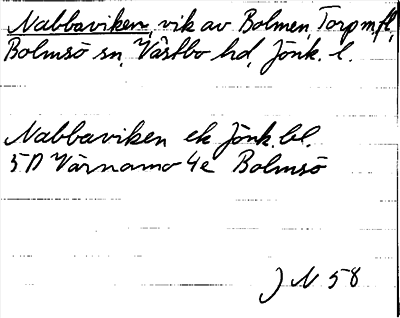 Nabbaviken, vik av Bolmen, Torp m.fl.,
Bolmsö sn, Västbo hd, Jönk. l.
Nabbaviken ek Jönk. bl.
5D Värnamo 4e Bolmsö
J N 58